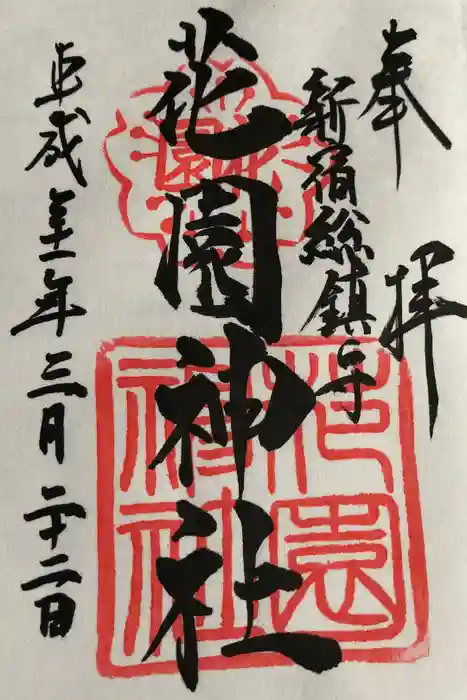 奉拝
新宿総鎮守
花園神社
平成三十一年三月二十二日
花園
神社